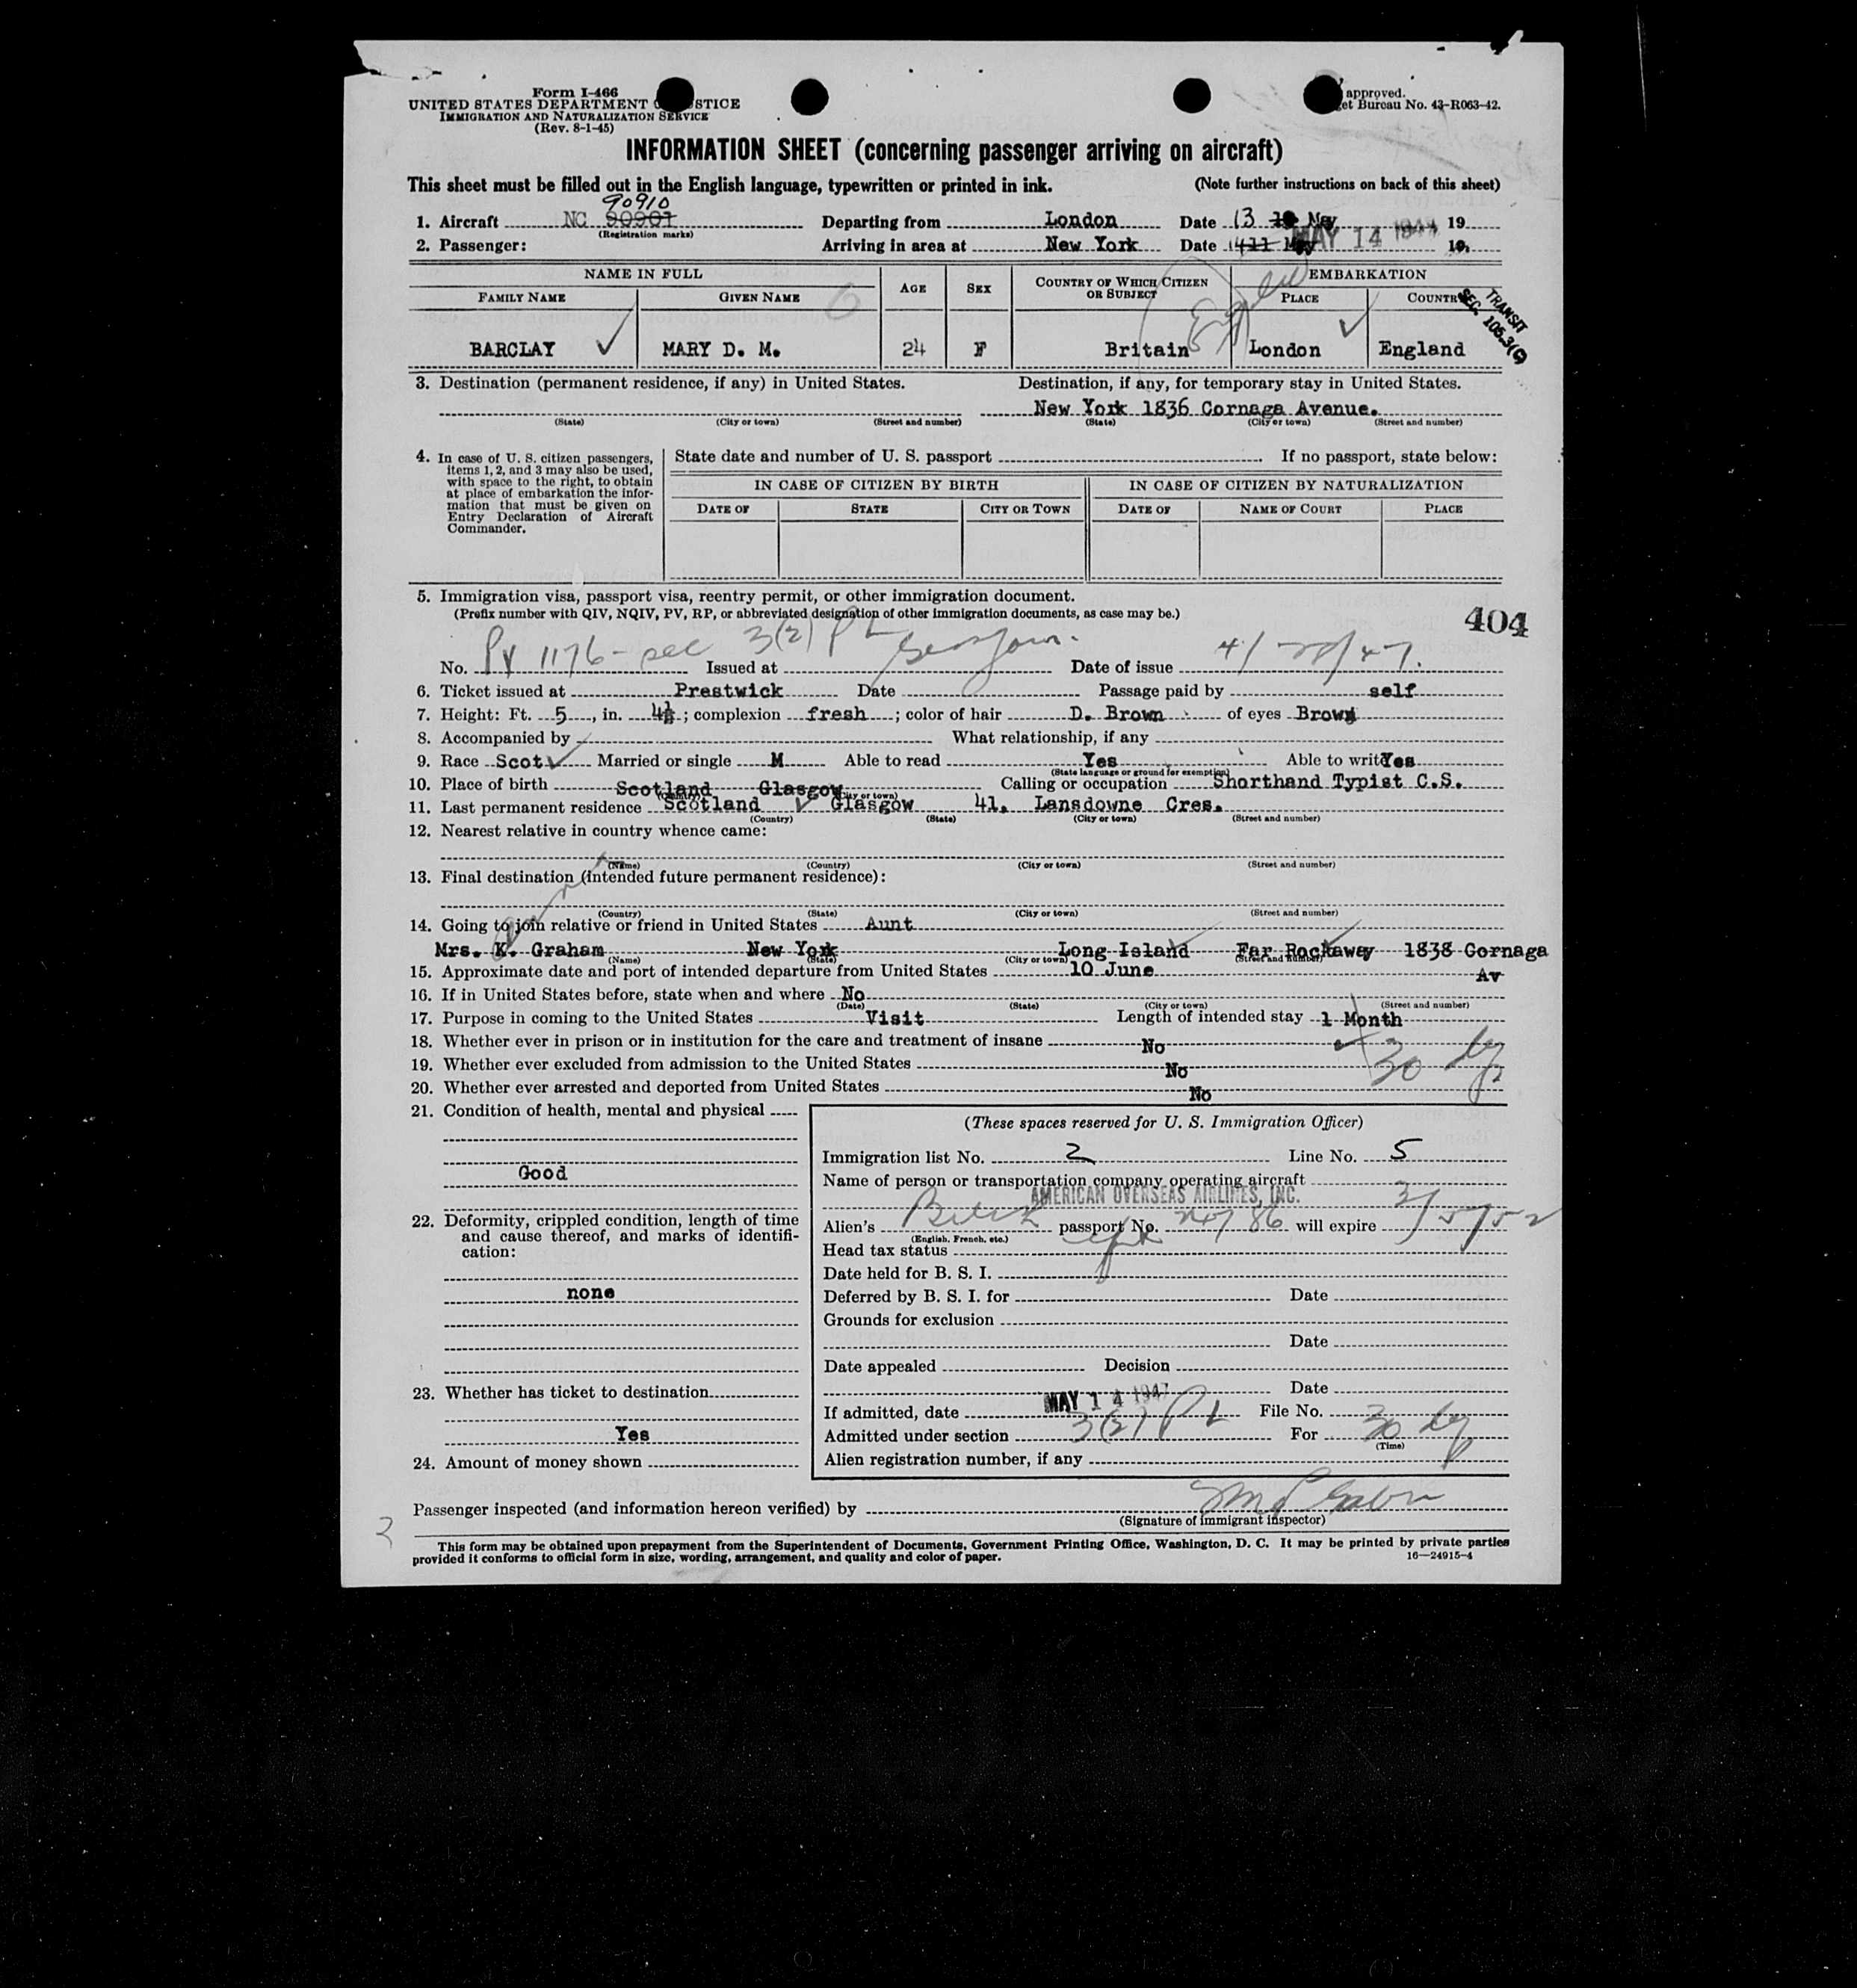 Form I-466
UNITED STATES DEPARTMENT STICE
IMMIGRATION AND NATURALIZATION SERVICE
(Rev. 8-1-45)
approved.
et Bureau No. 43-R063-42.
INFORMATION SHEET (concerning passenger arriving on aircraft)
This sheet must be filled out in the English language, typewritten or printed in ink. (Note further instructions on back of this sheet)
90910
1. Aircraft NC 90901 Departing from London Date 13 May 19
(Registration marks)
2. Passenger: Arriving in area at New York Date 14 11 May MAY 14 19
NAME IN FULL AGE SEX COUNTRY OF WHICH CITIZEN OR SUBJECT EMBARKATION
FAMILY NAME GIVEN NAME PLACE COUNTR
TRANSIT
SEC. 105.3(C)
BARCLAY MARY D. M. 24 F Britain London England
3. Destination (permanent residence, if any) in United States. Destination, if any, for temporary stay in United States.
New York 1836 Cornaga Avenue.
(State) (City or town) (Street and number) (State) (City or town) (Street and number)
4. In case of U. S. citizen passengers, items 1, 2, and 3 may also be used, with space to the right, to obtain at place of embarkation the information that must be given on Entry Declaration of Aircraft Commander.
State date and number of U. S. passport If no passport, state below:
IN CASE OF CITIZEN BY BIRTH IN CASE OF CITIZEN BY NATURALIZATION
DATE OF STATE CITY OR TOWN DATE OF NAME OF COURT PLACE
5. Immigration visa, passport visa, reentry permit, or other immigration document.
(Prefix number with QIV, NQIV, PV, RP, or abbreviated designation of other immigration documents, as case may be.)
404
No. PV 1176 - sec 3(2) PL Issued at Glasgow. Date of issue 4/28/47.
6. Ticket issued at Prestwick Date Passage paid by self
7. Height: Ft. 5, in. 4½; complexion fresh; color of hair D. Brown of eyes Brown
8. Accompanied by What relationship, if any
9. Race Scot Married or single M Able to read Yes Able to write Yes
(State language or ground for exemption)
10. Place of birth Scotland Glasgow Calling or occupation Shorthand Typist C.S.
(Country) (City or town)
11. Last permanent residence Scotland Glasgow 41. Lansdowne Cres.
(Country) (State) (City or town) (Street and number)
12. Nearest relative in country whence came:
(Name) (Country) (City or town) (Street and number)
13. Final destination (intended future permanent residence):
(Country) (State) (City or town) (Street and number)
14. Going to join relative or friend in United States Aunt
Mrs. K. Graham New York Long Island Far Rockaway 1838 Cornaga
(Name) (State) (City or town) (Street and number)
15. Approximate date and port of intended departure from United States 10 June Av
16. If in United States before, state when and where No
(Date) (State) (City or town) (Street and number)
17. Purpose in coming to the United States Visit Length of intended stay 1 Month
18. Whether ever in prison or in institution for the care and treatment of insane No
30 dy
19. Whether ever excluded from admission to the United States No
20. Whether ever arrested and deported from United States No
21. Condition of health, mental and physical
Good
22. Deformity, crippled condition, length of time and cause thereof, and marks of identification:
none
23. Whether has ticket to destination
Yes
24. Amount of money shown
(These spaces reserved for U. S. Immigration Officer)
Immigration list No. 2 Line No. 5
Name of person or transportation company operating aircraft
AMERICAN OVERSEAS AIRLINES, INC.
Alien's passport No. 86 will expire 3/5/52
(English, French, etc.)
Head tax status
Date held for B. S. I.
Deferred by B. S. I. for Date
Grounds for exclusion
Date
Date appealed Decision
Date
If admitted, date MAY 14 1947 File No.
Admitted under section 3(2) PL For 30 dy
(Time)
Alien registration number, if any
Passenger inspected (and information hereon verified) by
(Signature of immigrant inspector)
This form may be obtained upon prepayment from the Superintendent of Documents, Government Printing Office, Washington, D. C. It may be printed by private parties
provided it conforms to official form in size, wording, arrangement, and quality and color of paper. 16—24915-4